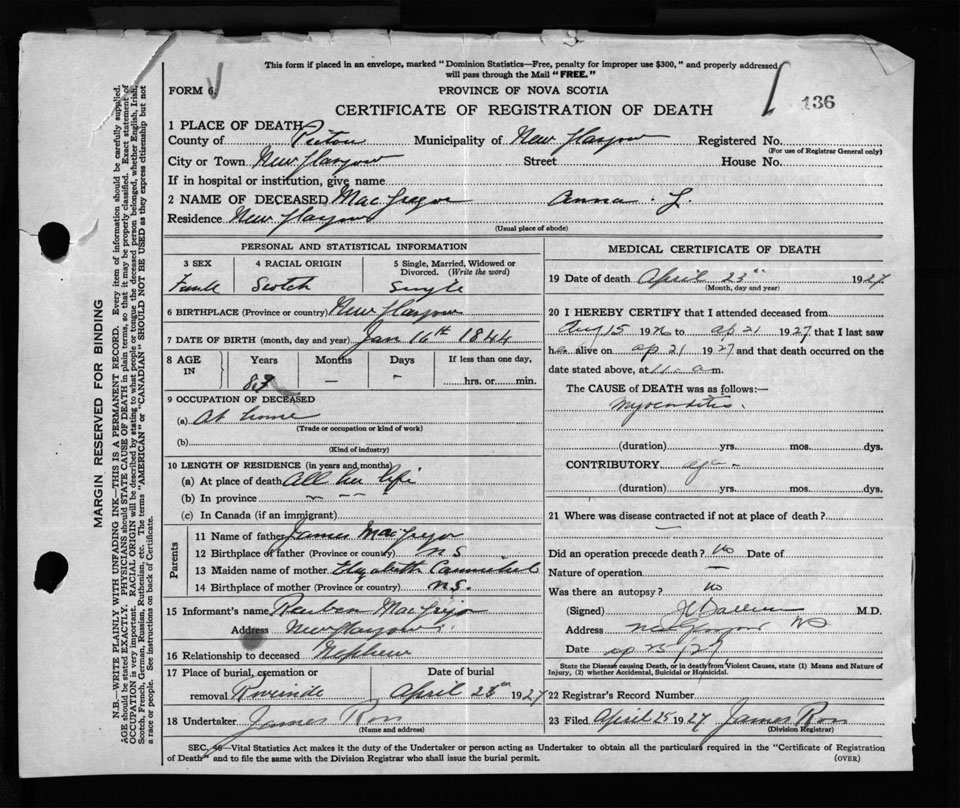 This form if placed in an envelope, marked "Dominion Statistics—Free, penalty for improper use $300," and properly addressed
will pass through the Mail "FREE."
FORM 6.
PROVINCE OF NOVA SCOTIA
CERTIFICATE OF REGISTRATION OF DEATH
136
1 PLACE OF DEATH
County of Pictou Municipality of New Glasgow Registered No.
(For use of Registrar General only)
City or Town New Glasgow Street House No.
If in hospital or institution, give name
2 NAME OF DECEASED MacGregor Anna L.
Residence New Glasgow
(Usual place of abode)
PERSONAL AND STATISTICAL INFORMATION
3 SEX
4 RACIAL ORIGIN
5 Single, Married, Widowed or Divorced. (Write the word)
Female Scotch Single
6 BIRTHPLACE (Province or country) New Glasgow
7 DATE OF BIRTH (month, day and year) Jan 16th 1844
8 AGE IN
Years Months Days If less than one day,
83 — — hrs. or min.
9 OCCUPATION OF DECEASED
(a) At home
(Trade or occupation or kind of work)
(b)
(Kind of industry)
10 LENGTH OF RESIDENCE (in years and months)
(a) At place of death All her life
(b) In province
(c) In Canada (if an immigrant)
Parents
11 Name of father James MacGregor
12 Birthplace of father (Province or country) N S
13 Maiden name of mother Elizabeth Carmichael
14 Birthplace of mother (Province or country) N.S.
15 Informant's name Reuben MacGregor
Address New Glasgow
16 Relationship to deceased Nephew
17 Place of burial, cremation or removal Riverside
Date of burial
April 25th 1927
18 Undertaker James Ross
(Name and address)
MEDICAL CERTIFICATE OF DEATH
19 Date of death April 23rd 1927
(Month, day and year)
20 I HEREBY CERTIFY that I attended deceased from
Aug 15 1926 to ap 21 1927 that I last saw
her alive on ap 21 1927 and that death occurred on the
date stated above, at 11 a m.
The CAUSE of DEATH was as follows:—
Myocarditis
(duration) yrs. mos. dys.
CONTRIBUTORY age
(duration) yrs. mos. dys.
21 Where was disease contracted if not at place of death?
—
Did an operation precede death? No Date of
Nature of operation —
Was there an autopsy? No
(Signed) M.D.
Address New Glasgow NS
Date ap 25/27
State the Disease causing Death, or in death from Violent Causes, state (1) Means and Nature of
Injury, (2) whether Accidental, Suicidal or Homicidal.
22 Registrar's Record Number
23 Filed April 25 1927 James Ross
(Division Registrar)
SEC. 46—Vital Statistics Act makes it the duty of the Undertaker or person acting as Undertaker to obtain all the particulars required in the "Certificate of Registration
of Death" and to file the same with the Division Registrar who shall issue the burial permit.
(OVER)
MARGIN RESERVED FOR BINDING
N.B.—WRITE PLAINLY WITH UNFADING INK—THIS IS A PERMANENT RECORD. Every item of information should be carefully supplied.
AGE should be stated EXACTLY. PHYSICIANS should STATE CAUSE OF DEATH in plain terms, so that it may be properly classified. Exact statement of
OCCUPATION is very important. RACIAL ORIGIN will be described by stating to what people or tongue the deceased person belonged, whether English, Irish,
Scotch, French, German, Russian, Ruthenian, etc. The terms "AMERICAN" or "CANADIAN" SHOULD NOT BE USED as they express citizenship but not
a race or people. See instructions on back of Certificate.